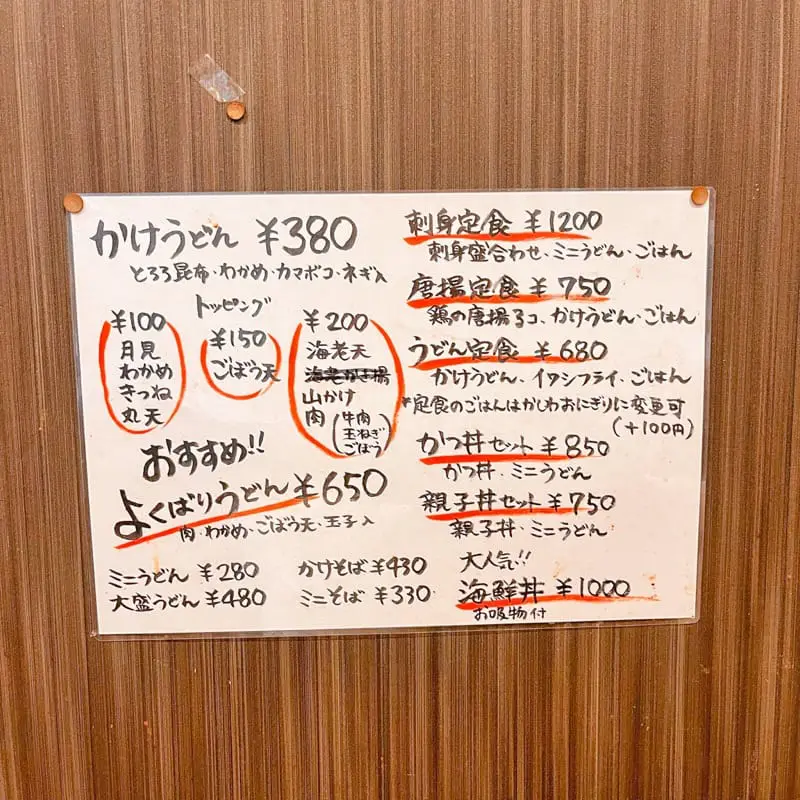 かけうどん ¥380
とろろ昆布・わかめ・カマボコ・ネギ入
トッピング
¥100
月見
わかめ
きつね
丸天
¥150
ごぼう天
¥200
海老天
海老かき揚
山かけ
肉(牛肉 玉ねぎ ごぼう)
おすすめ!!
よくばりうどん ¥650
肉・わかめ・ごぼう天・玉子入
ミニうどん ¥280
大盛うどん ¥480
かけそば ¥430
ミニそば ¥330
刺身定食 ¥1200
刺身盛合わせ、ミニうどん・ごはん
唐揚定食 ¥750
鶏の唐揚3コ、かけうどん・ごはん
うどん定食 ¥680
かけうどん、イワシフライ、ごはん
*定食のごはんはかしわおにぎりに変更可
(+100円)
かつ丼セット ¥850
かつ丼、ミニうどん
親子丼セット ¥750
親子丼・ミニうどん
大人気!!
海鮮丼 ¥1000
お吸物付